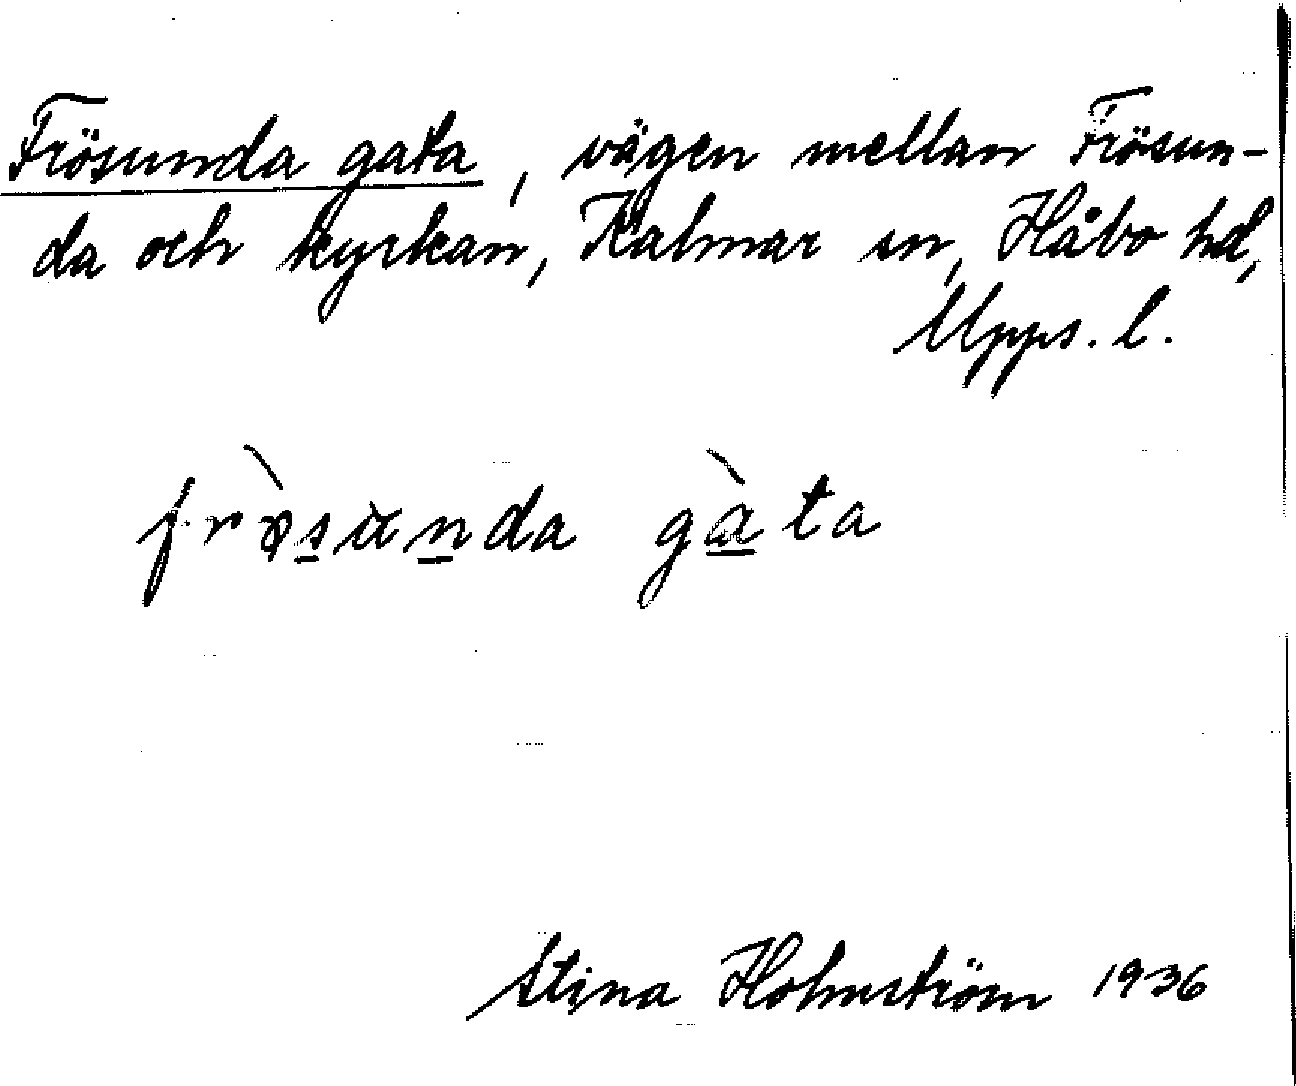 Frösunda gata, vägen mellan Frösun-
da och kyrkan, Kalmar sn, Håbo hd,
Upps. l.
frø̀sunda gàta
Stina Holmström 1936